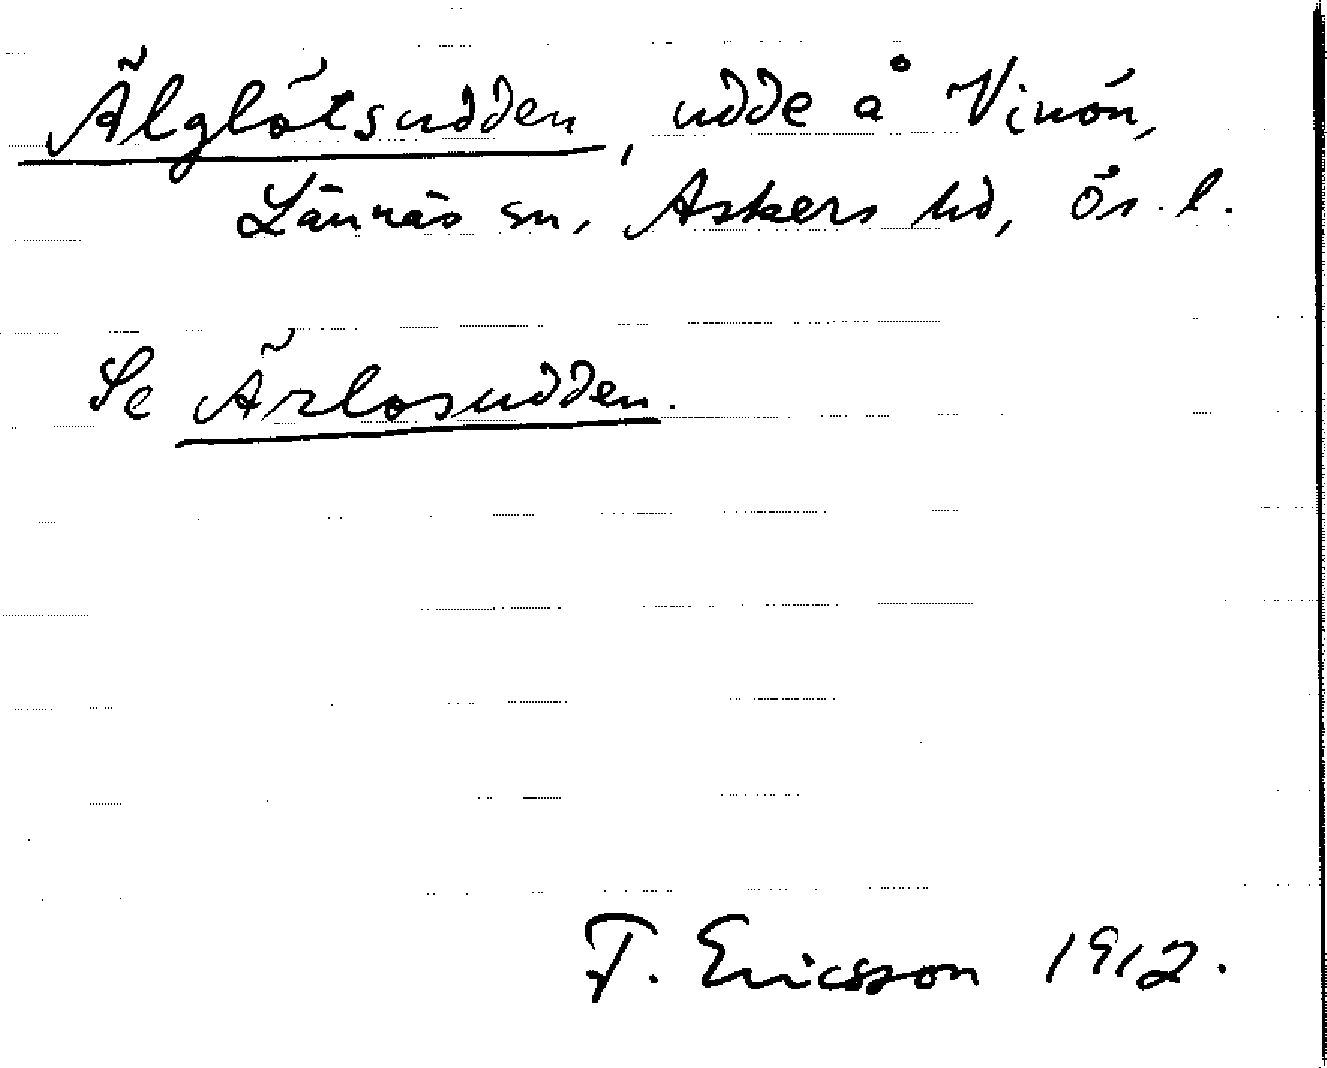 Älglötsudden, udde å Vinön,
Lännäs sn, Askers hd, Ös. l.
Se Ärlosudden.
F. Ericsson 1912.